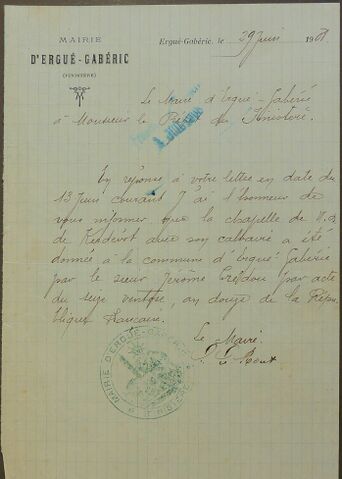 MAIRIE
D'ERGUÉ-GABÉRIC
(FINISTÈRE)
Ergué-Gabéric, le 29 Juin 190
Le Maire d'Ergué-Gabéric
à Monsieur le Préfet du Finistère.
En réponse à votre lettre en date du
13 Juin courant J'ai l'honneur de
vous informer que la chapelle de N.D.
de Kerdévot avec son calvaire a été
donnée à la commune d'Ergué-Gabéric
par le sieur Jérôme Crédou par acte
du seize ventose, an douze de la Répu
blique Française.
Le Maire.
P. Le Roux
MAIRIE D'ERGUÉ-GABÉRIC
FINISTÈRE